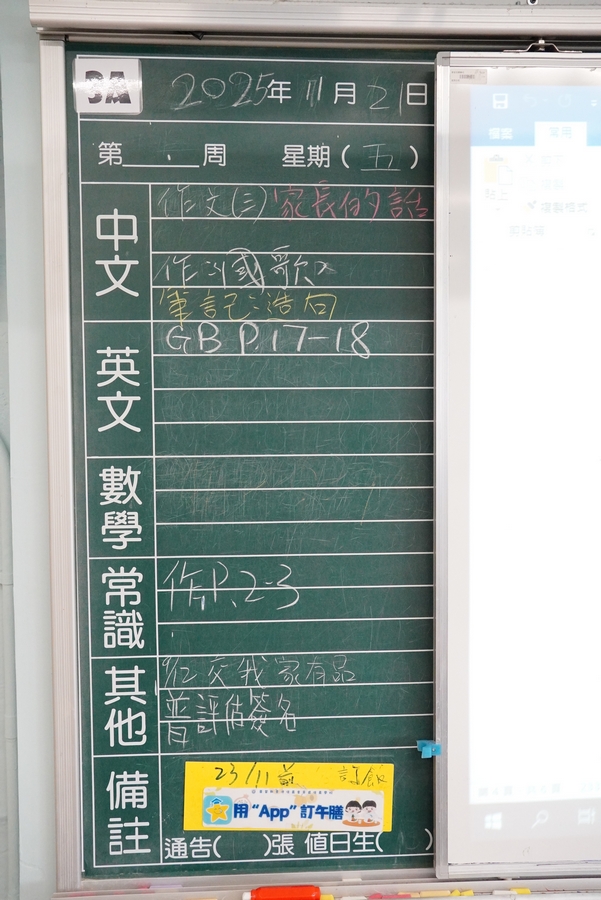 3A
2025年 11月 21日
第 周 星期(五)
中文
作文(三) 家長的話
作 國歌
筆記：造句
英文
GB P.17-18
數學
常識
作 P.2-3
其他
交我家有品
普評估簽名
備註
23/11前 訂飯
用“App”訂午膳
通告( )張 值日生( )
檔案 常用
複製格式
剪貼簿